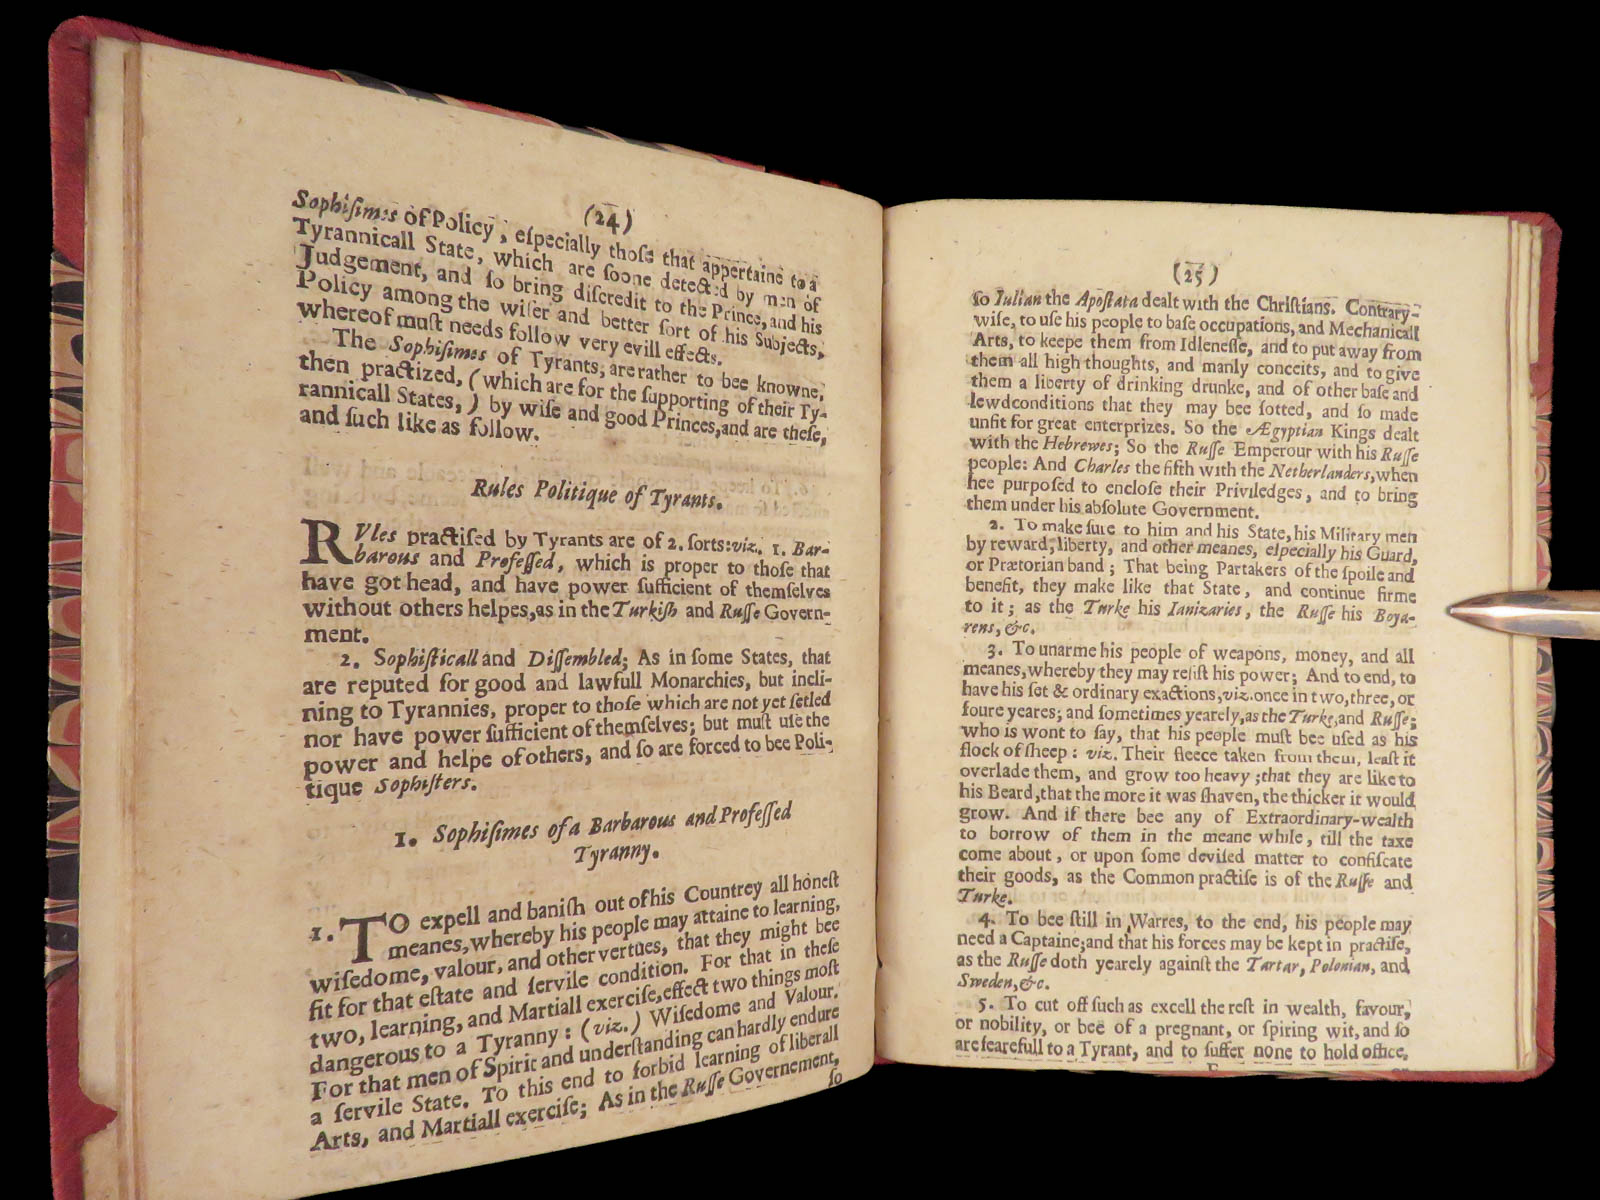 (24)
Sophiſimes of Policy, eſpecially thoſe that appertaine to a
Tyrannicall State, which are ſoone detected by men of
Judgement, and ſo bring diſcredit to the Prince, and his
Policy among the wiſer and better ſort of his Subjects,
whereof muſt needs follow very evill effects.
The Sophiſimes of Tyrants, are rather to bee knowne,
then practized, (which are for the ſupporting of their Ty-
rannicall States,) by wiſe and good Princes, and are theſe,
and ſuch like as follow.
Rules Politique of Tyrants.
RVles practiſed by Tyrants are of 2. ſorts: viz. 1. Bar-
barous and Profeſſed, which is proper to thoſe that
have got head, and have power ſufficient of themſelves
without others helpes, as in the Turkiſh and Ruſſe Govern-
ment.
2. Sophiſticall and Diſſembled; As in ſome States, that
are reputed for good and lawfull Monarchies, but incli-
ning to Tyrannies, proper to thoſe which are not yet ſetled
nor have power ſufficient of themſelves; but muſt uſe the
power and helpe of others, and ſo are forced to bee Poli-
tique Sophiſters.
1. Sophiſimes of a Barbarous and Profeſſed
Tyranny.
1. TO expell and baniſh out of his Countrey all honeſt
meanes, whereby his people may attaine to learning,
wiſedome, valour, and other vertues, that they might bee
fit for that eſtate and ſervile condition. For that in theſe
two, learning, and Martiall exerciſe, effect two things moſt
dangerous to a Tyranny: (viz.) Wiſedome and Valour.
For that men of Spirit and underſtanding can hardly endure
a ſervile State. To this end to forbid learning of liberall
Arts, and Martiall exerciſe; As in the Ruſſe Governement,
ſo
(25)
ſo Iulian the Apoſtata dealt with the Chriſtians. Contrary-
wiſe, to uſe his people to baſe occupations, and Mechanicall
Arts, to keepe them from Idleneſſe, and to put away from
them all high thoughts, and manly conceits, and to give
them a liberty of drinking drunke, and of other baſe and
lewd conditions that they may bee ſotted, and ſo made
unfit for great enterprizes. So the Ægyptian Kings dealt
with the Hebrewes; So the Ruſſe Emperour with his Ruſſe
people: And Charles the fifth with the Netherlanders, when
hee purpoſed to encloſe their Priviledges, and to bring
them under his abſolute Government.
2. To make ſure to him and his State, his Military men
by reward, liberty, and other meanes, eſpecially his Guard,
or Prætorian band; That being Partakers of the ſpoile and
benefit, they make like that State, and continue firme
to it; as the Turke his Ianizaries, the Ruſſe his Boya-
rens, &c.
3. To unarme his people of weapons, money, and all
meanes, whereby they may reſiſt his power; And to end, to
have his ſet & ordinary exactions, viz. once in two, three, or
foure yeares; and ſometimes yearely, as the Turke, and Ruſſe;
who is wont to ſay, that his people muſt bee uſed as his
flock of ſheep: viz. Their fleece taken from them, leaſt it
overlade them, and grow too heavy; that they are like to
his Beard, that the more it was ſhaven, the thicker it would
grow. And if there bee any of Extraordinary-wealth
to borrow of them in the meane while, till the taxe
come about, or upon ſome deviſed matter to confiſcate
their goods, as the Common practiſe is of the Ruſſe and
Turke.
4. To bee ſtill in Warres, to the end, his people may
need a Captaine; and that his forces may be kept in practiſe,
as the Ruſſe doth yearely againſt the Tartar, Polonian, and
Sweden, &c.
5. To cut off ſuch as excell the reſt in wealth, favour,
or nobility, or bee of a pregnant, or ſpiring wit, and ſo
are fearefull to a Tyrant, and to ſuffer none to hold office,